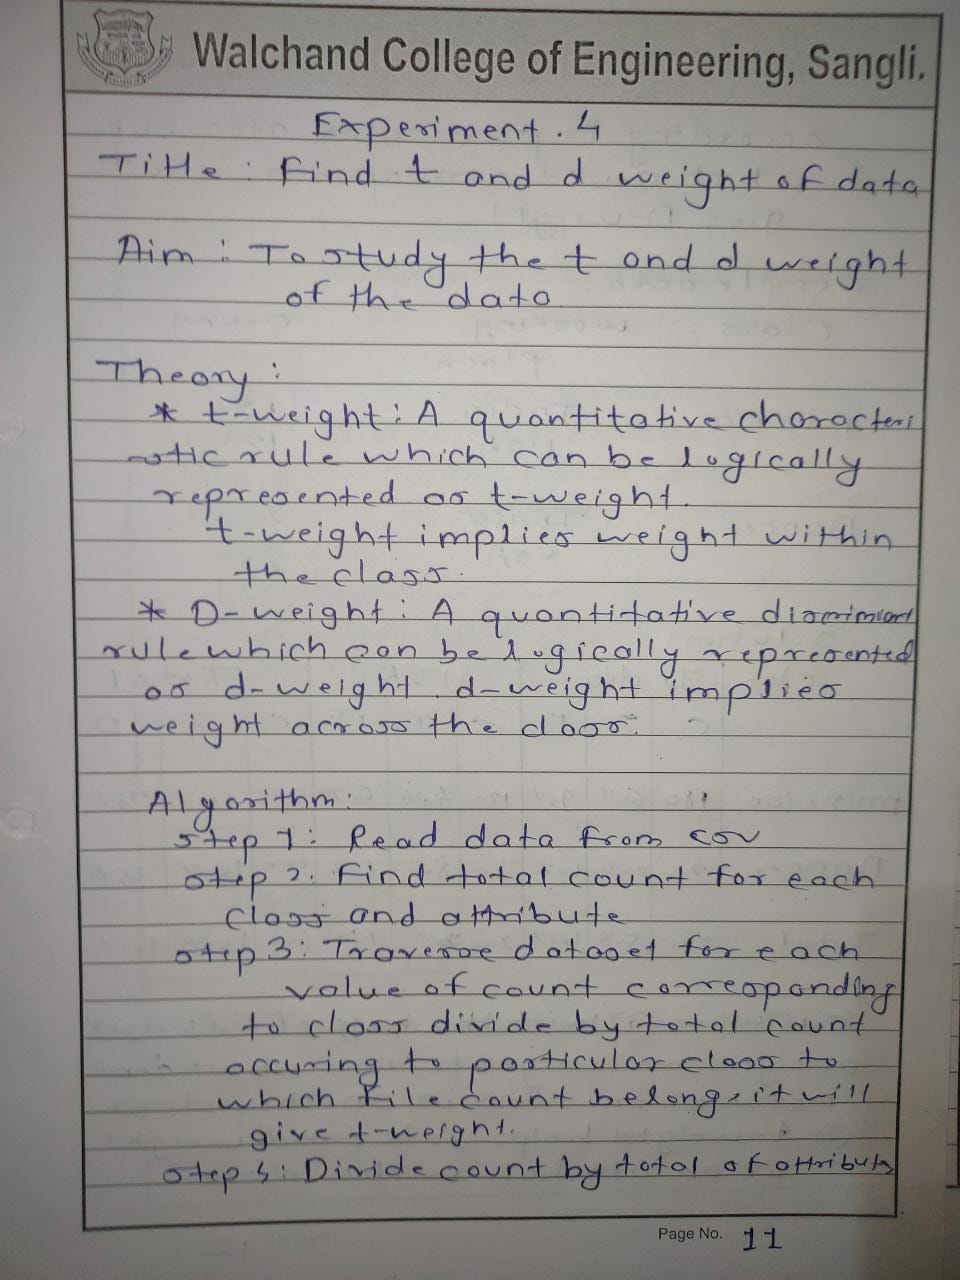 Walchand College of Engineering, Sangli.
Experiment. 4
Title: Find t and d weight of data
Aim: To study the t and d weight
of the data
Theory:
* t-weight: A quantitative characteri
stic rule which can be logically
represented as t-weight.
t-weight implies weight within
the class.
* D-weight: A quantitative
rule which can be logically represented
as d-weight. d-weight implies
weight across the class.
Algorithm:
Step 1: Read data from csv
Step 2. Find total count for each
class and attribute
Step 3: Traverse dataset for each
value of count corresponding
to class divide by total count
occuring to particular class to
which file count belong, it will
give t-weight.
Step : Divide count by total of attribute
Page No. 11